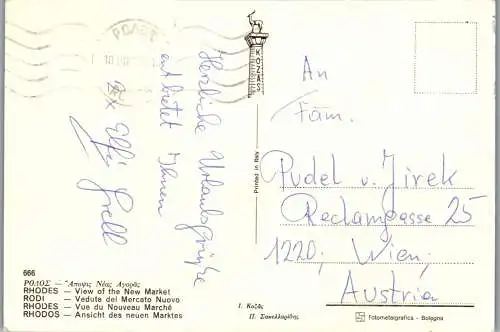 ΡΟΔΟΣ
Herzliche Urlaubsgrüße
entbietet Ihnen
Elfi Grell
KOZAS
Printed in Italy
An
Fam.
Pudel v. Jirek
Reclamgasse 25
1220, Wien,
Austria
666
ΡΟΔΟΣ — Ἄποψις Νέας Ἀγορᾶς
RHODES — View of the New Market
RODI — Veduta del Mercato Nuovo
RHODES — Vue du Nouveau Marché
RHODOS — Ansicht des neuen Marktes
Ι. Κοζᾶς
Π. Σακελλαρίδης
Fotometalgrafica - Bologna